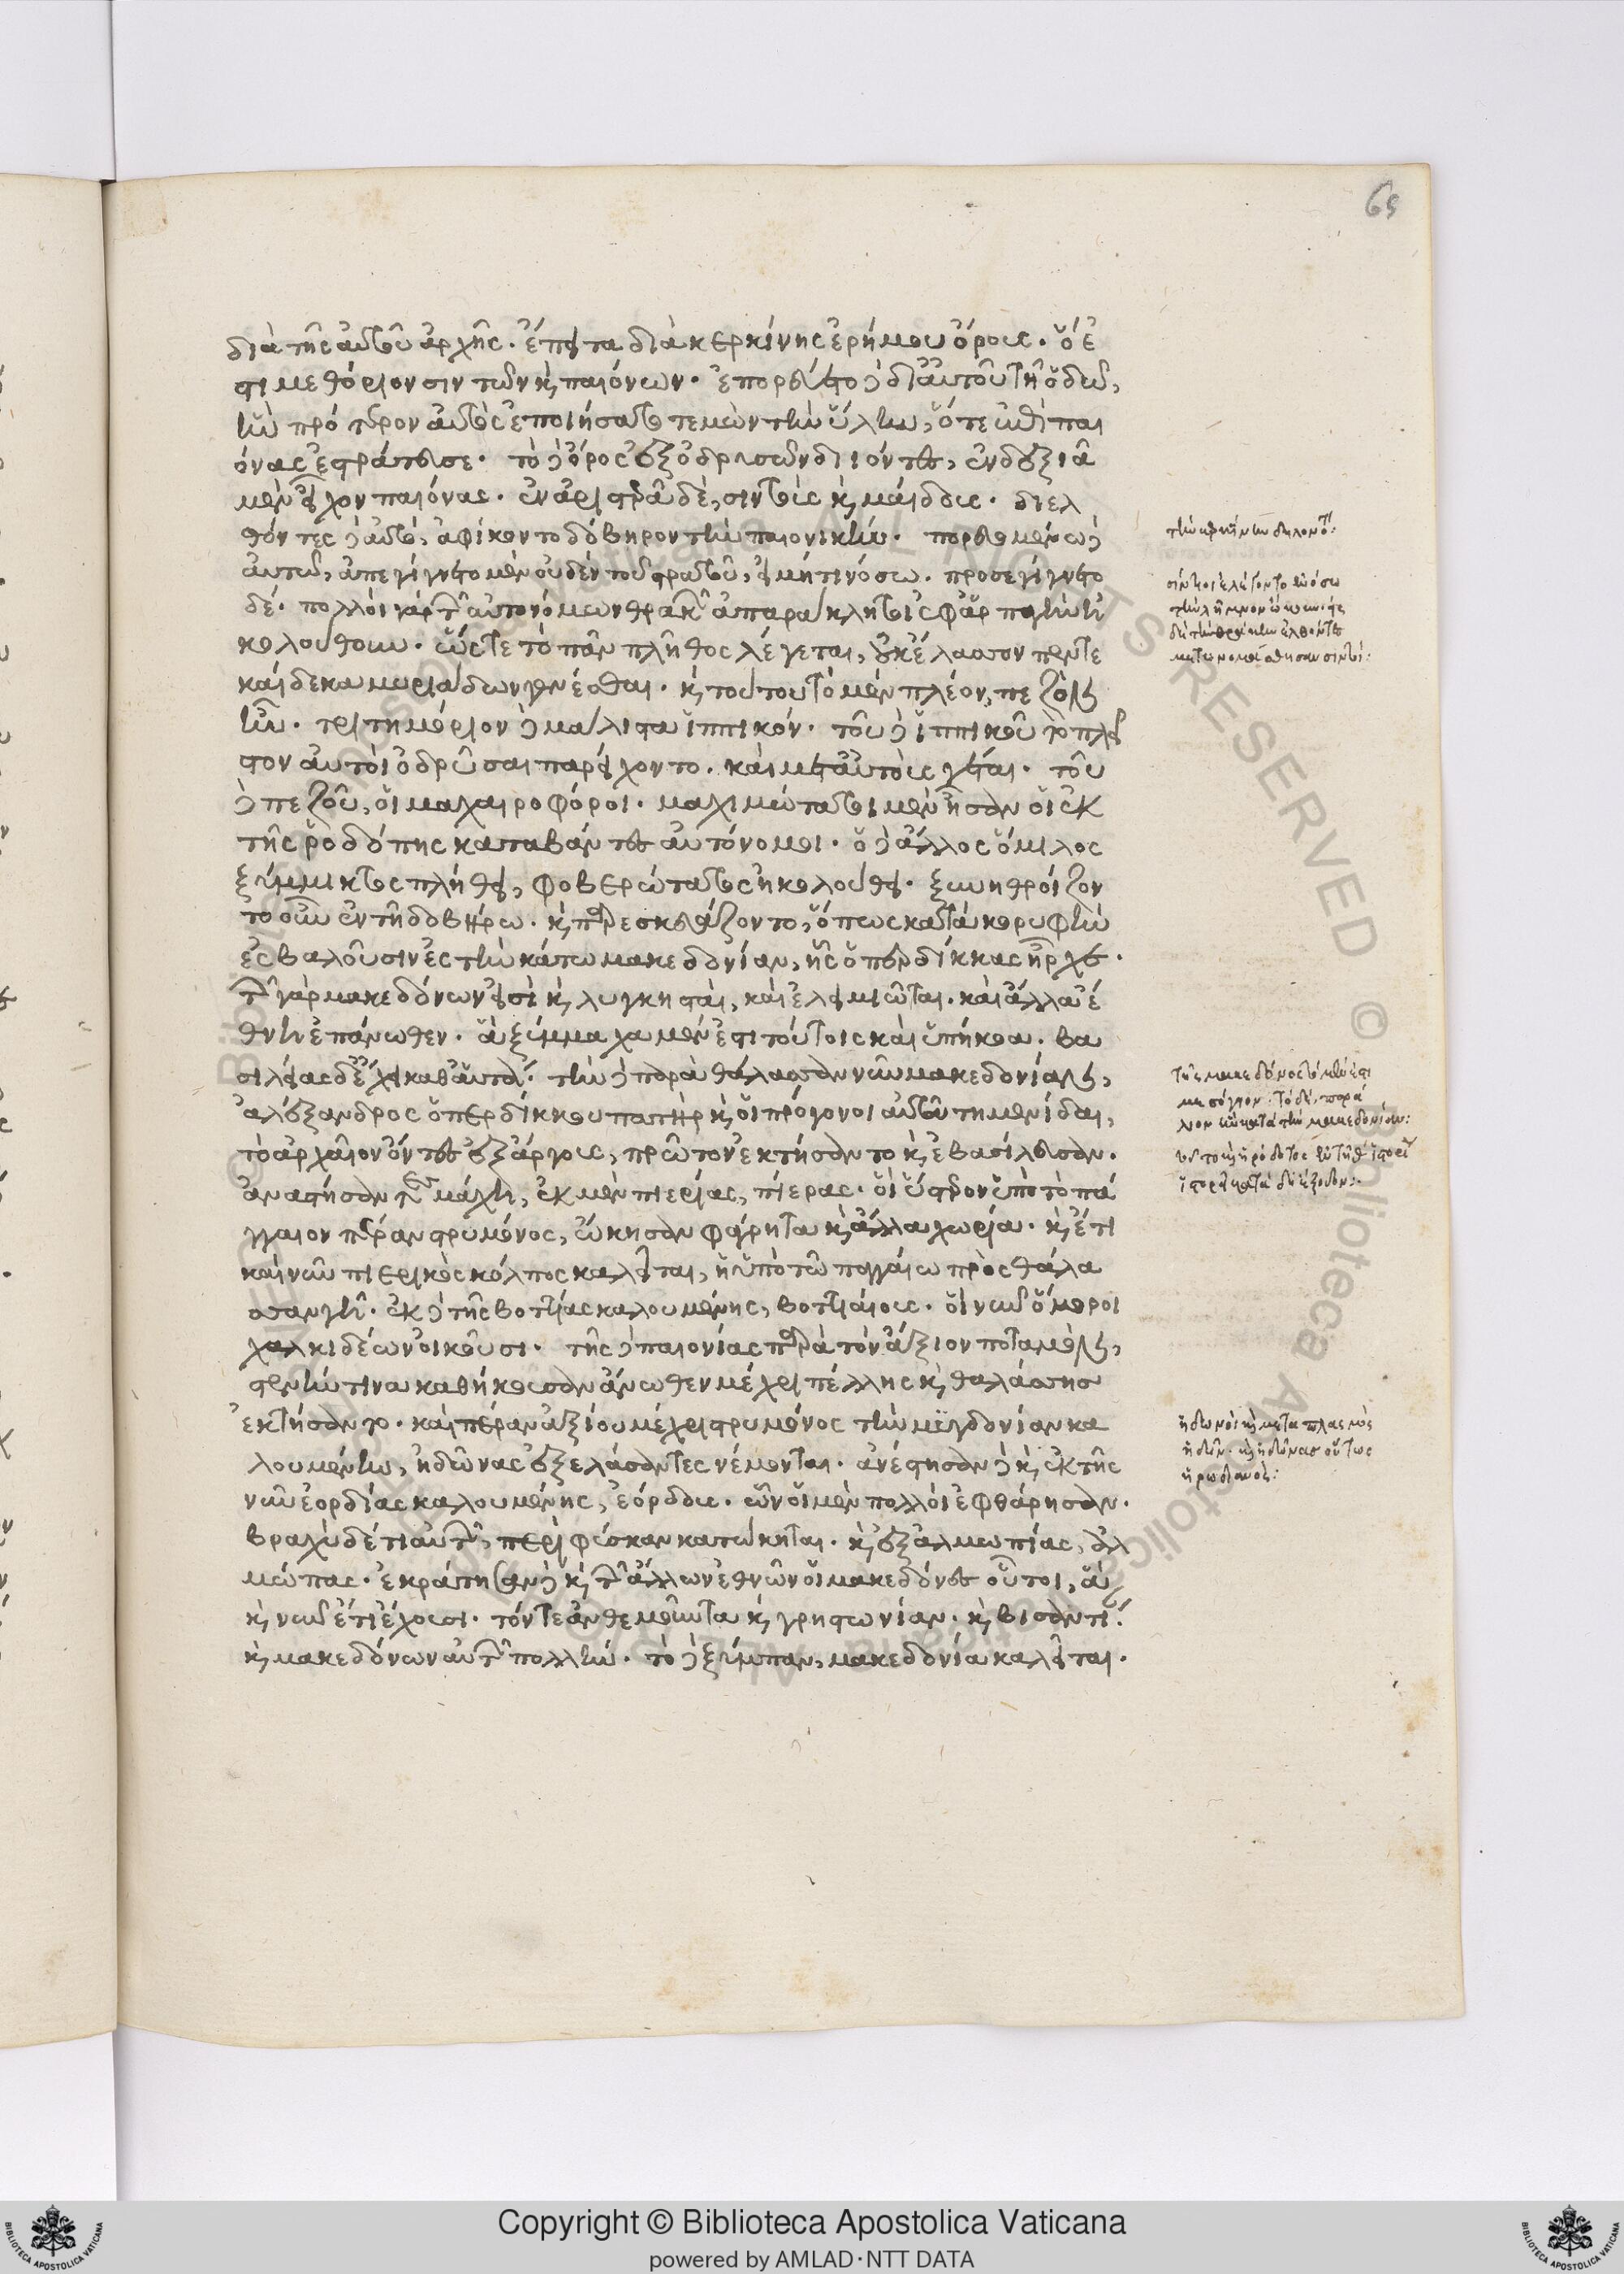 65
διὰ τῆς αὐτοῦ ἀρχῆς· ἔπειτα διὰ κερκίνης ἐρήμου ὄρους· ὅ ἐ
στι μεθόριον σιντῶν καὶ παιόνων· ἐπορεύετο δὲ δι' αὐτοῦ τῇ ὁδῷ,
ἣν πρότερον αὐτὸς ἐποιήσατο τεμὼν τὴν ὕλην, ὅτε ἐπὶ παι
όνας ἐστράτευσε· τὸ δὲ ὄρος ἐξ ὀδρυσῶν διιόντες, ἐν δεξιᾷ
μὲν εἶχον παιόνας· ἐν ἀριστερᾷ δὲ, σιντοὺς καὶ μαίδους· διελ
θόντες δὲ αὐτὸ, ἀφίκοντο δόβηρον τὴν παιονικήν· πορευομένω δὲ
αὐτῷ, ἀπεγίγνετο μὲν οὐδὲν τοῦ στρατοῦ, εἰ μή τι νόσω· προσεγίγνετο
δέ· πολλοὶ γὰρ τῶν αὐτονόμων θρακῶν ἀπαράκλητοι ἐφ' ἁρπαγὴν ἠ
κολούθουν· ὥστε τὸ πᾶν πλῆθος λέγεται, οὐκ ἔλασσον πέντε
καίδεκα μυριάδων γενέσθαι· καὶ τούτου τὸ μὲν πλέον, πεζὸν
ἦν· τριτημόριον δὲ μάλιστα ἱππικόν· τοῦ δὲ ἱππικοῦ τὸ πλεῖ
στον αὐτοὶ ὀδρύσαι παρείχοντο· καὶ μετ' αὐτοὺς γέται· τοῦ
δὲ πεζοῦ, οἱ μαχαιροφόροι· μαχιμώτατοι μὲν ἦσαν οἱ ἐκ
τῆς ῥοδόπης καταβάντες αὐτόνομοι· ὁ δὲ ἄλλος ὅμιλος
ξύμμικτος πλήθει, φοβερώτατος ἠκολούθει· ξυνηθροίζον
το οὖν ἐν τῇ δοβήρω· καὶ παρεσκευάζοντο, ὅπως κατὰ κορυφὴν
ἐσβαλοῦσιν ἐς τὴν κάτω μακεδονίαν, ἧς ὁ περδίκκας ἦρχε·
τῶν γὰρ μακεδόνων εἰσὶ καὶ λυγκησταὶ, καὶ ἐλειμιῶται· καὶ ἄλλα ἔ
θνη ἐπάνωθεν· ἃ ξύμμαχα μέν ἐστι τούτοις καὶ ὑπήκοα· βα
σιλείας δὲ ἔχει καθ' αὑτά· τὴν δὲ παρὰ θάλασσαν νῦν μακεδονίαν,
ἀλέξανδρος ὁ περδίκκου πατὴρ καὶ οἱ πρόγονοι αὐτοῦ τημενίδαι,
τὸ ἀρχαῖον ὄντες ἐξ ἄργους, πρῶτον ἐκτήσαντο καὶ ἐβασίλευσαν·
ἀναστήσαντες μάχη, ἐκ μὲν πιερίας, πίερας· οἳ ὕστερον ὑπὸ τὸ πά
γγαιον πέραν στρυμόνος, ᾤκησαν φάγρητα καὶ ἄλλα χωρία· καὶ ἔτι
καὶ νῦν πιερικὸς κόλπος καλεῖται, ἡ ὑπὸ τῶ παγγαίω πρὸς θάλα
σσαν γῆ· ἐκ δὲ τῆς βοττίας καλουμένης, βοττιαίους· οἳ νῦν ὅμοροι
χαλκιδέων οἰκοῦσι· τῆς δὲ παιονίας παρὰ τὸν ἄξιον ποταμὸν,
στενήν τινα καθήκουσαν ἄνωθεν μέχρι πέλλης καὶ θαλάσσης
ἐκτήσαντο· καὶ πέραν ἀξίου μέχρι στρυμόνος τὴν μυγδονίαν κα
λουμένην, ἠδῶνας ἐξελάσαντες νέμονται· ἀνέστησαν δὲ καὶ ἐκ τῆς
νῦν ἐορδίας καλουμένης, ἐόρδους· ὧν οἱ μὲν πολλοὶ ἐφθάρησαν·
βραχὺ δέ τι αὐτῶν, περὶ φύσκαν κατώκηται· καὶ ἐξ ἀλμωπίας, ἀλ
μῶπας· ἐκράτησαν δὲ καὶ τῶν ἄλλων ἐθνῶν οἱ μακεδόνες οὗτοι, ἃ
καὶ νῦν ἔτι ἔχουσι· τόν τε ἀνθεμοῦντα καὶ γρηστωνίαν· καὶ βισαλτί·
καὶ μακεδόνων αὐτῶν πολλήν· τὸ δὲ ξύμπαν, μακεδονία καλεῖται·
τὴν κερκίνην δηλονότι:
σίντιοι ἐλέγοντο ἐν ὅσω
τὴν λῆμνον ᾤκουν· εἰς
δὲ τὴν θράκην ἐλθόντες
μετωνομάσθησαν σιντοί:
τῆς μακεδόνος τὸ μέν ἐστι
μεσόγειον· τὸ δὲ, παρά
λιον κατὰ τὴν μακεδονίαν:
τοῦτο καὶ ἡρόδοτος ἐν τῇ ἱστορεῖ
κατὰ διέξοδον:
ἠδωνοὶ καὶ μεταπλασμὸς
ἠδών· καὶ ἠδῶνας οὕτως
ἡρωδιανός:
Copyright © Biblioteca Apostolica Vaticana
powered by AMLAD·NTT DATA